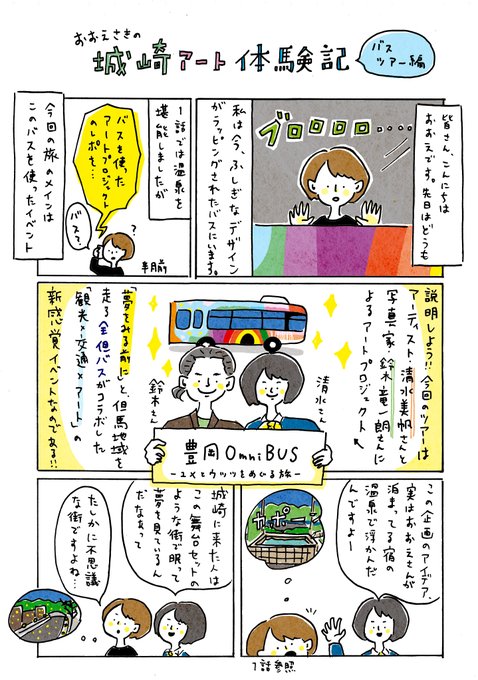 おおえさきの
城崎アート体験記
バス
ツアー編
皆さん、こんにちは
おおえです。先日はどうも
ブロロロロ・・・・
私は今、ふしぎなデザイン
がラッピングされたバスにいます。
1話では温泉を
堪能しましたが
バスを使った
アートプロジェクト
のレポを…
バス?
?
半月前
今回の旅のメインは
このバスを使ったイベント
説明しよう!!今回のツアーは
アーティスト・清水美帆さんと
写真家・鈴木竜一朗さんに
よるアートプロジェクト
「夢をみる前に」と、但馬地域を
走る全但バスがコラボした
「観光×交通×アート」の
新感覚イベントなのである!!
清水さん
鈴木さん
豊岡OmniBUS
-ユメとウツツをめぐる旅-
この企画のアイデア、
実はおおえさんが
泊まってる宿の
温泉で浮かんだ
んですよー
カポーン
1話参照
城崎に来た人は
この舞台セットの
ような街で眠って
夢を見ているん
だなぁって
たしかに不思議
な街ですよね…